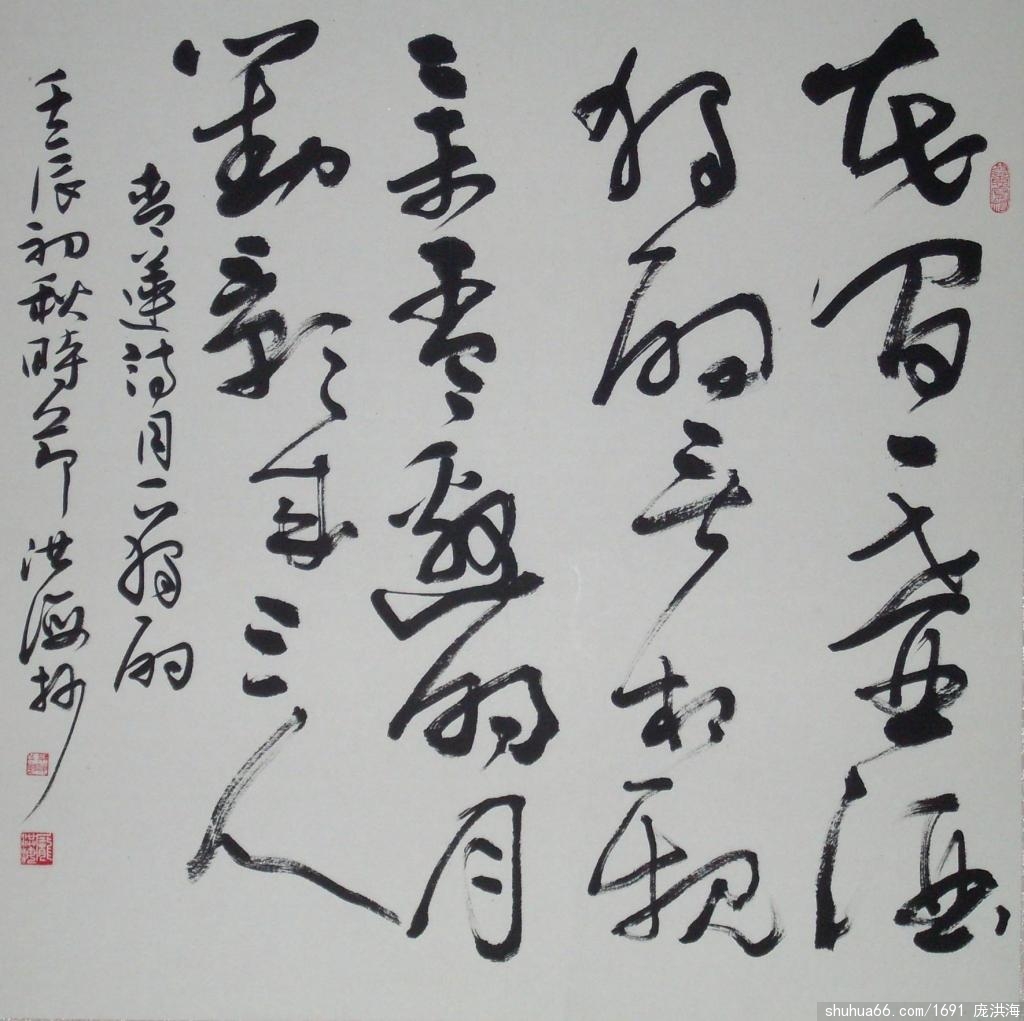 花間一壺酒
獨酌無相親
舉盃邀明月
對影成三人
青蓮詩月下獨酌
壬辰初秋時節洪海抄
龐洪海
shuhua66.com/1691 庞洪海